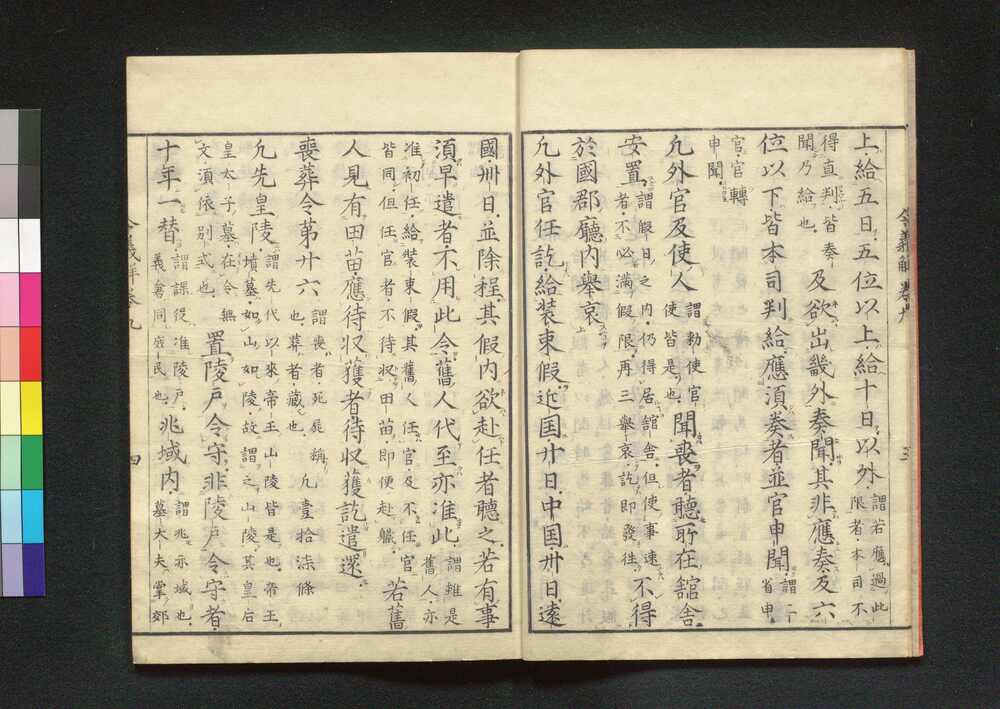 上給五日。五位以上給十日。以外謂若應過此限者本司不
得直判皆奏聞乃給也及欲出畿外奏聞。其非應奏及六
位以下皆本司判給。應須奏者並官申聞。謂二省申
官。官轉申聞。
凡外官及使人謂勅使官使皆是也聞喪者聽所在舘舎
安置。謂假日之内。仍得居舘舎。但使事速者。不必滿假限。再三舉哀。訖即發徃。不得
於國郡廳内舉哀
凡外官任訖。給装束假。近国廿日。中国卅日。遠
國卌日。並除程。其假内欲赴任者聽之。若有事
須早遣者。不用此令。舊人代至。亦准此。謂雖是舊人。亦
准初任。給装束假。其舊人任官及不任官皆同。但任官者。不待収田苗。即便赴軄若舊
人見有田苗。應待収獲者。待収獲訖遣還。
喪葬令第廿六謂喪者。死屍稱也。葬者。藏也。凡壹拾柒條
凡先皇陵。謂先代以來帝王山陵皆是也。帝王墳墓。如山如陵。故謂之山陵。其皇后
皇太子墓。在令無文。須依別式也。置陵戸令守。非陵戸令守者。
十年一替。謂課役准陵戸。義倉同庶民也兆域内。謂兆亦域也。墓大夫掌郊
令義解卷九 三
令義解卷九 四